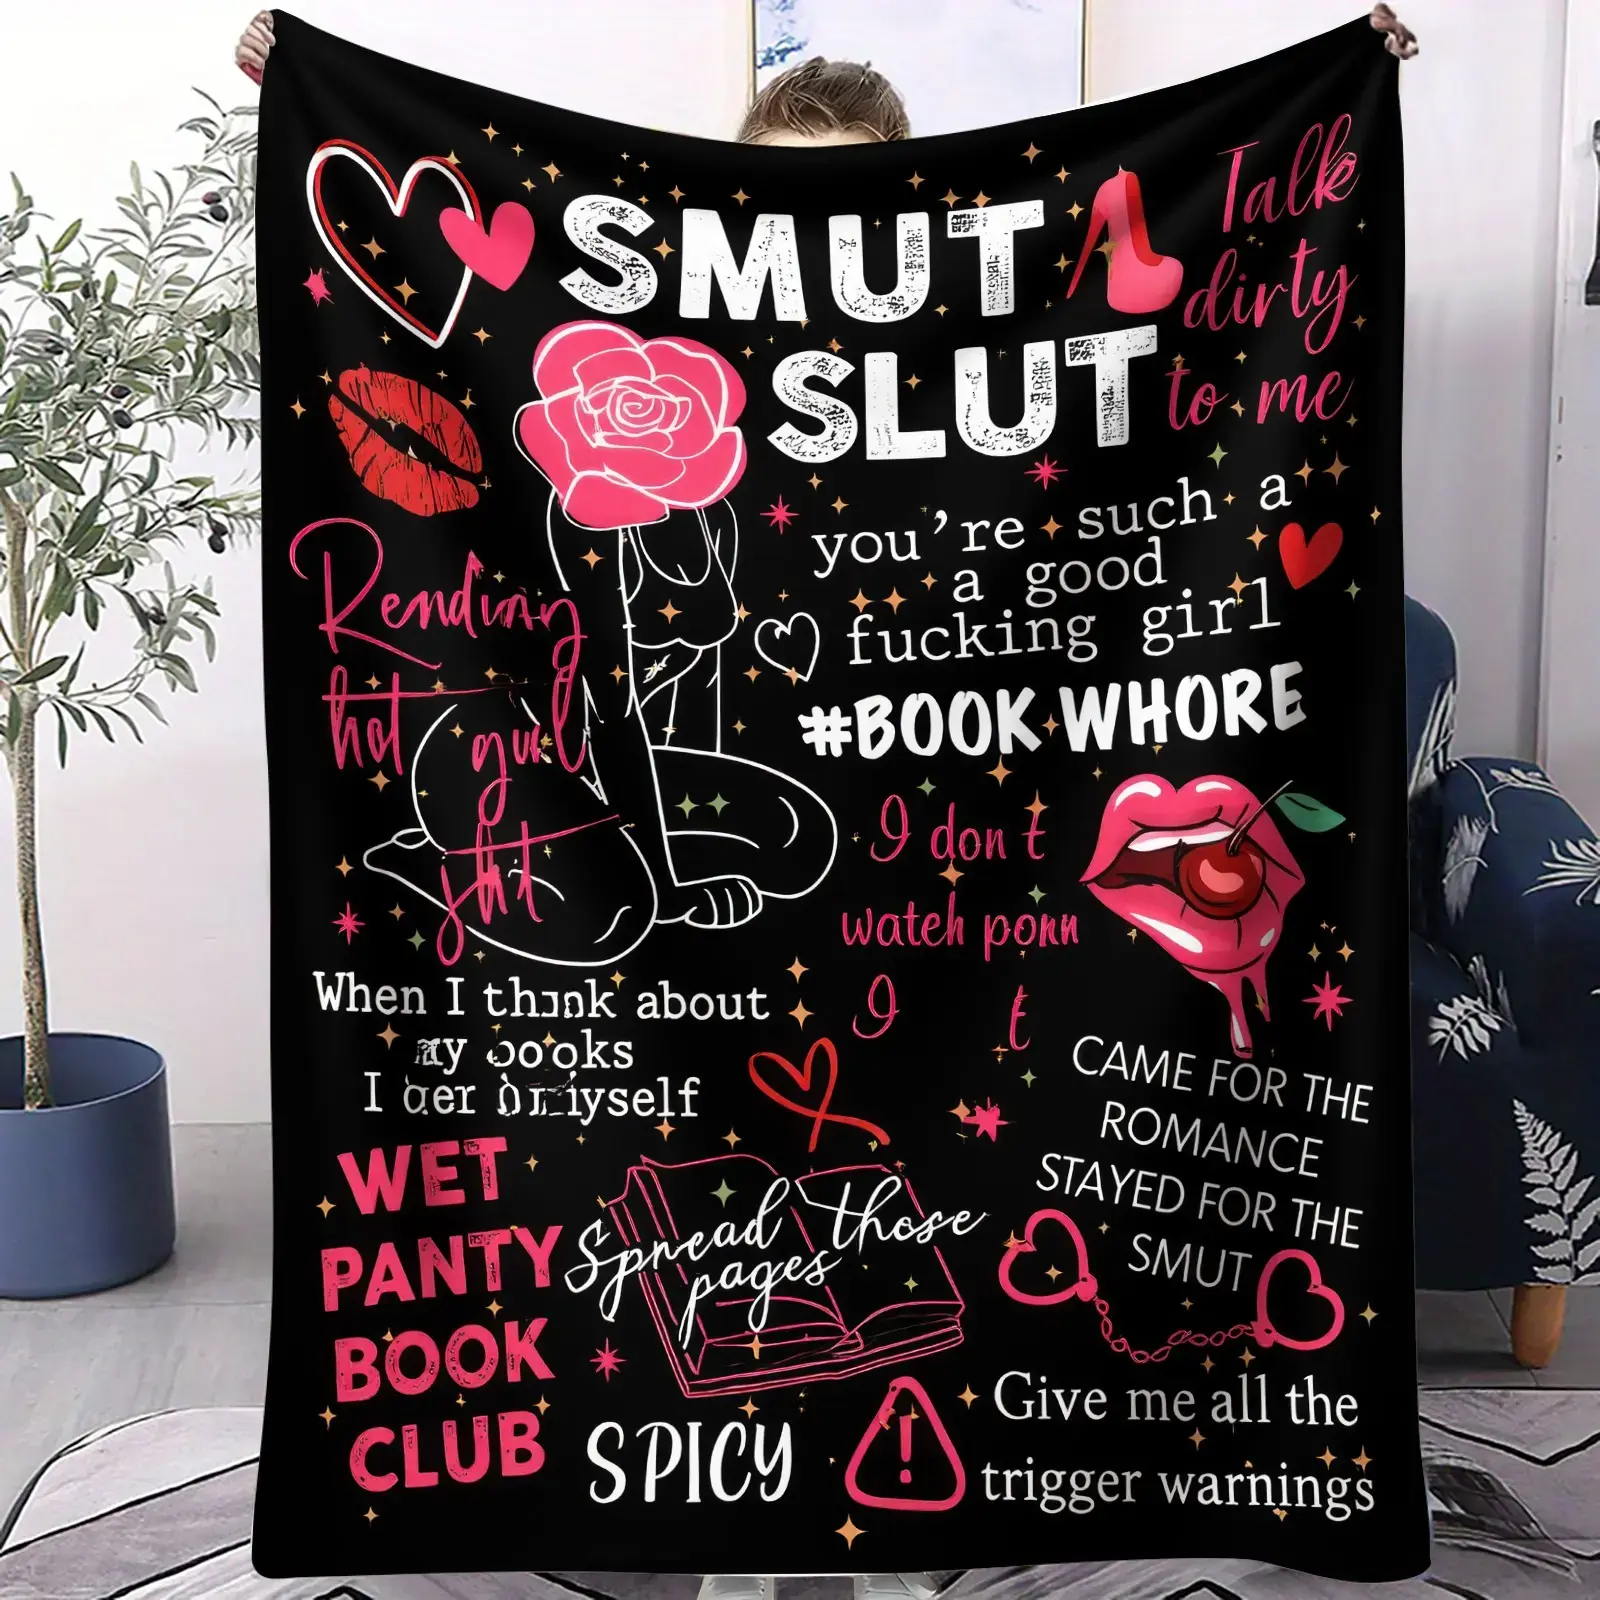 SMUT
SLUT
Talk
dirty
to me
you're such a
a good
fucking girl
#BOOK WHORE
Rending
hot girl
shit
I don't
watch porn
I t
When I think about
my books
I myself
CAME FOR THE
ROMANCE
STAYED FOR THE
SMUT
WET
PANTY
BOOK
CLUB
Spread those
pages
SPICY
Give me all the
trigger warnings